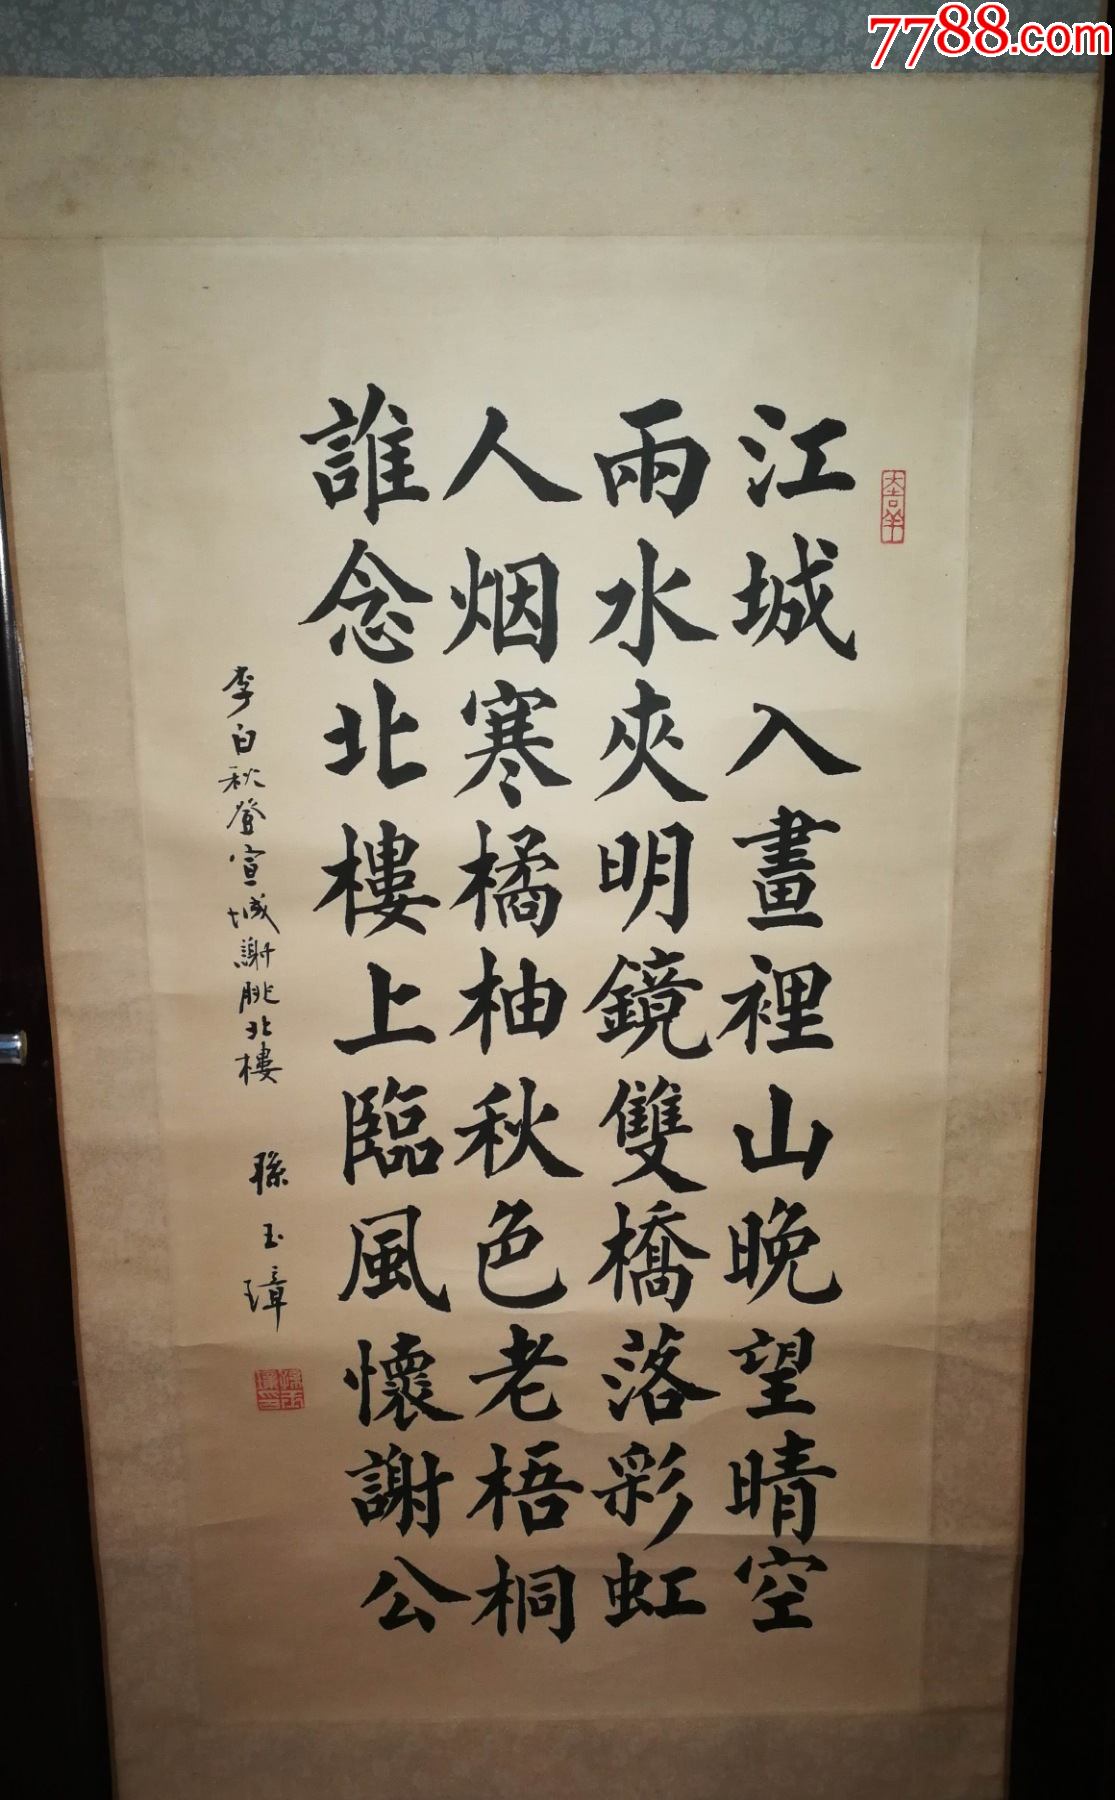 7788.com
大吉羊
江城入畫裡山晚望晴空
雨水夾明鏡雙橋落彩虹
人烟寒橘柚秋色老梧桐
誰念北樓上臨風懷謝公
李白秋登宣城謝朓北樓
孫玉璋